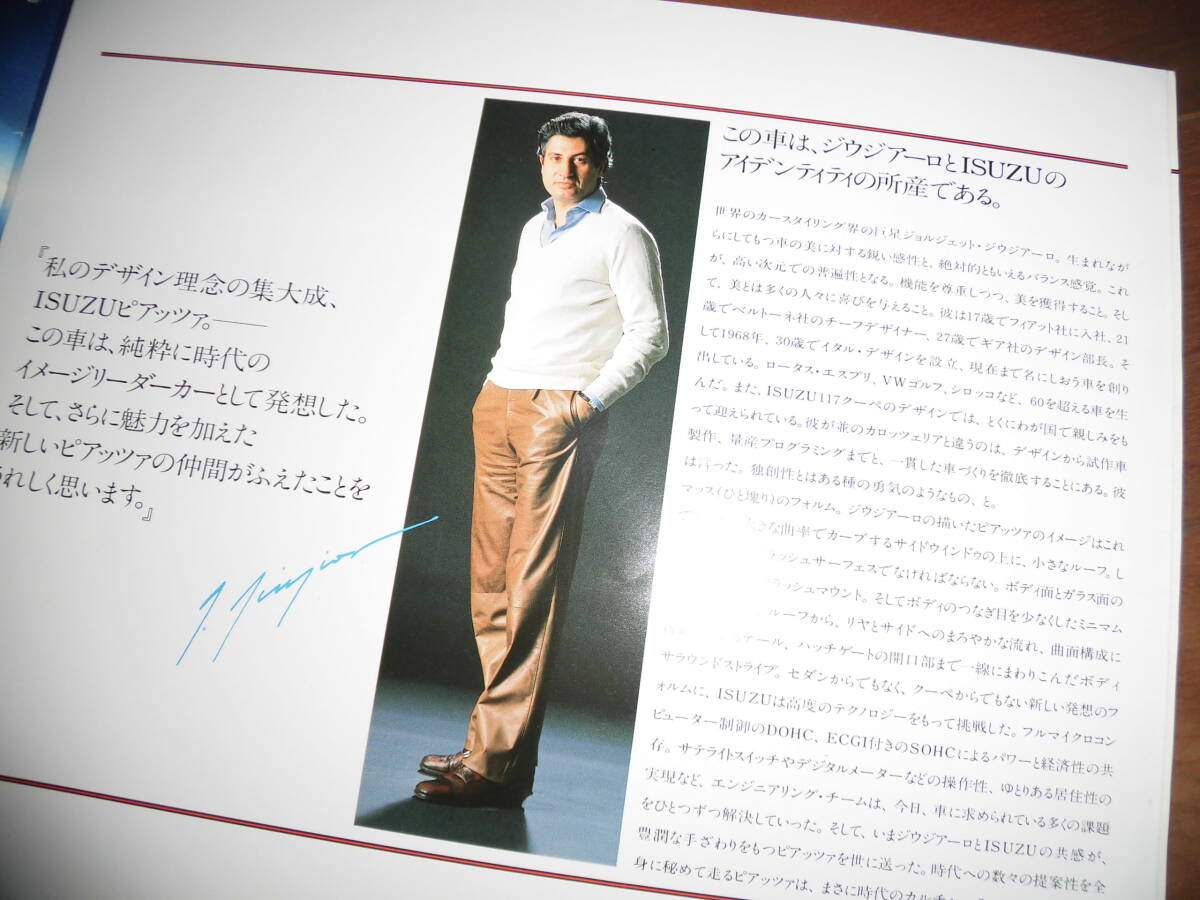 『私のデザイン理念の集大成、
ISUZUピアッツァ。——
この車は、純粋に時代の
イメージリーダーカーとして発想した。
そして、さらに魅力を加えた
新しいピアッツァの仲間がふえたことを
うれしく思います。』
この車は、ジウジアーロとISUZUの
アイデンティティの所産である。
世界のカースタイリング界の巨星ジョルジェット・ジウジアーロ。生まれなが
らにしてもつ車の美に対する鋭い感性と、絶対的ともいえるバランス感覚。これ
が、高い次元での普遍性となる。機能を尊重しつつ、美を獲得すること。そし
て、美とは多くの人々に喜びを与えること。彼は17歳でフィアット社に入社、21
歳でベルトーネ社のチーフデザイナー、27歳でギア社のデザイン部長。そ
して1968年、30歳でイタル・デザインを設立、現在まで名にしおう車を創り
出している。ロータス・エスプリ、VWゴルフ、シロッコなど、60を超える車を生
んだ。また、ISUZU117クーペのデザインでは、とくにわが国で親しみをも
って迎えられている。彼が並のカロッツェリアと違うのは、デザインから試作車
製作、量産プログラミングまでと、一貫した車づくりを徹底することにある。彼
は言った。独創性とはある種の勇気のようなもの、と。
マッス(ひと塊り)のフォルム。ジウジアーロの描いたピアッツァのイメージはこれ
大きな曲率でカーブするサイドウインドゥの上に、小さなルーフ。し
ラッシュサーフェスでなければならない。ボディ面とガラス面の
ラッシュマウント。そしてボディのつなぎ目を少なくしたミニマム
ルーフから、リヤとサイドへのまろやかな流れ、曲面構成に
アール、ハッチゲートの開口部まで一線にまわりこんだボディ
サラウンドストライプ。セダンからでもなく、クーペからでもない新しい発想のフ
ォルムに、ISUZUは高度のテクノロジーをもって挑戦した。フルマイクロコン
ピューター制御のDOHC、ECGI付きのSOHCによるパワーと経済性の共
存。サテライトスイッチやデジタルメーターなどの操作性、ゆとりある居住性の
実現など、エンジニアリング・チームは、今日、車に求められている多くの課題
をひとつずつ解決していった。そして、いまジウジアーロとISUZUの共感が、
豊潤な手ざわりをもつピアッツァを世に送った。時代への数々の提案性を全
身に秘めて走るピアッツァは、まさに時代のカル